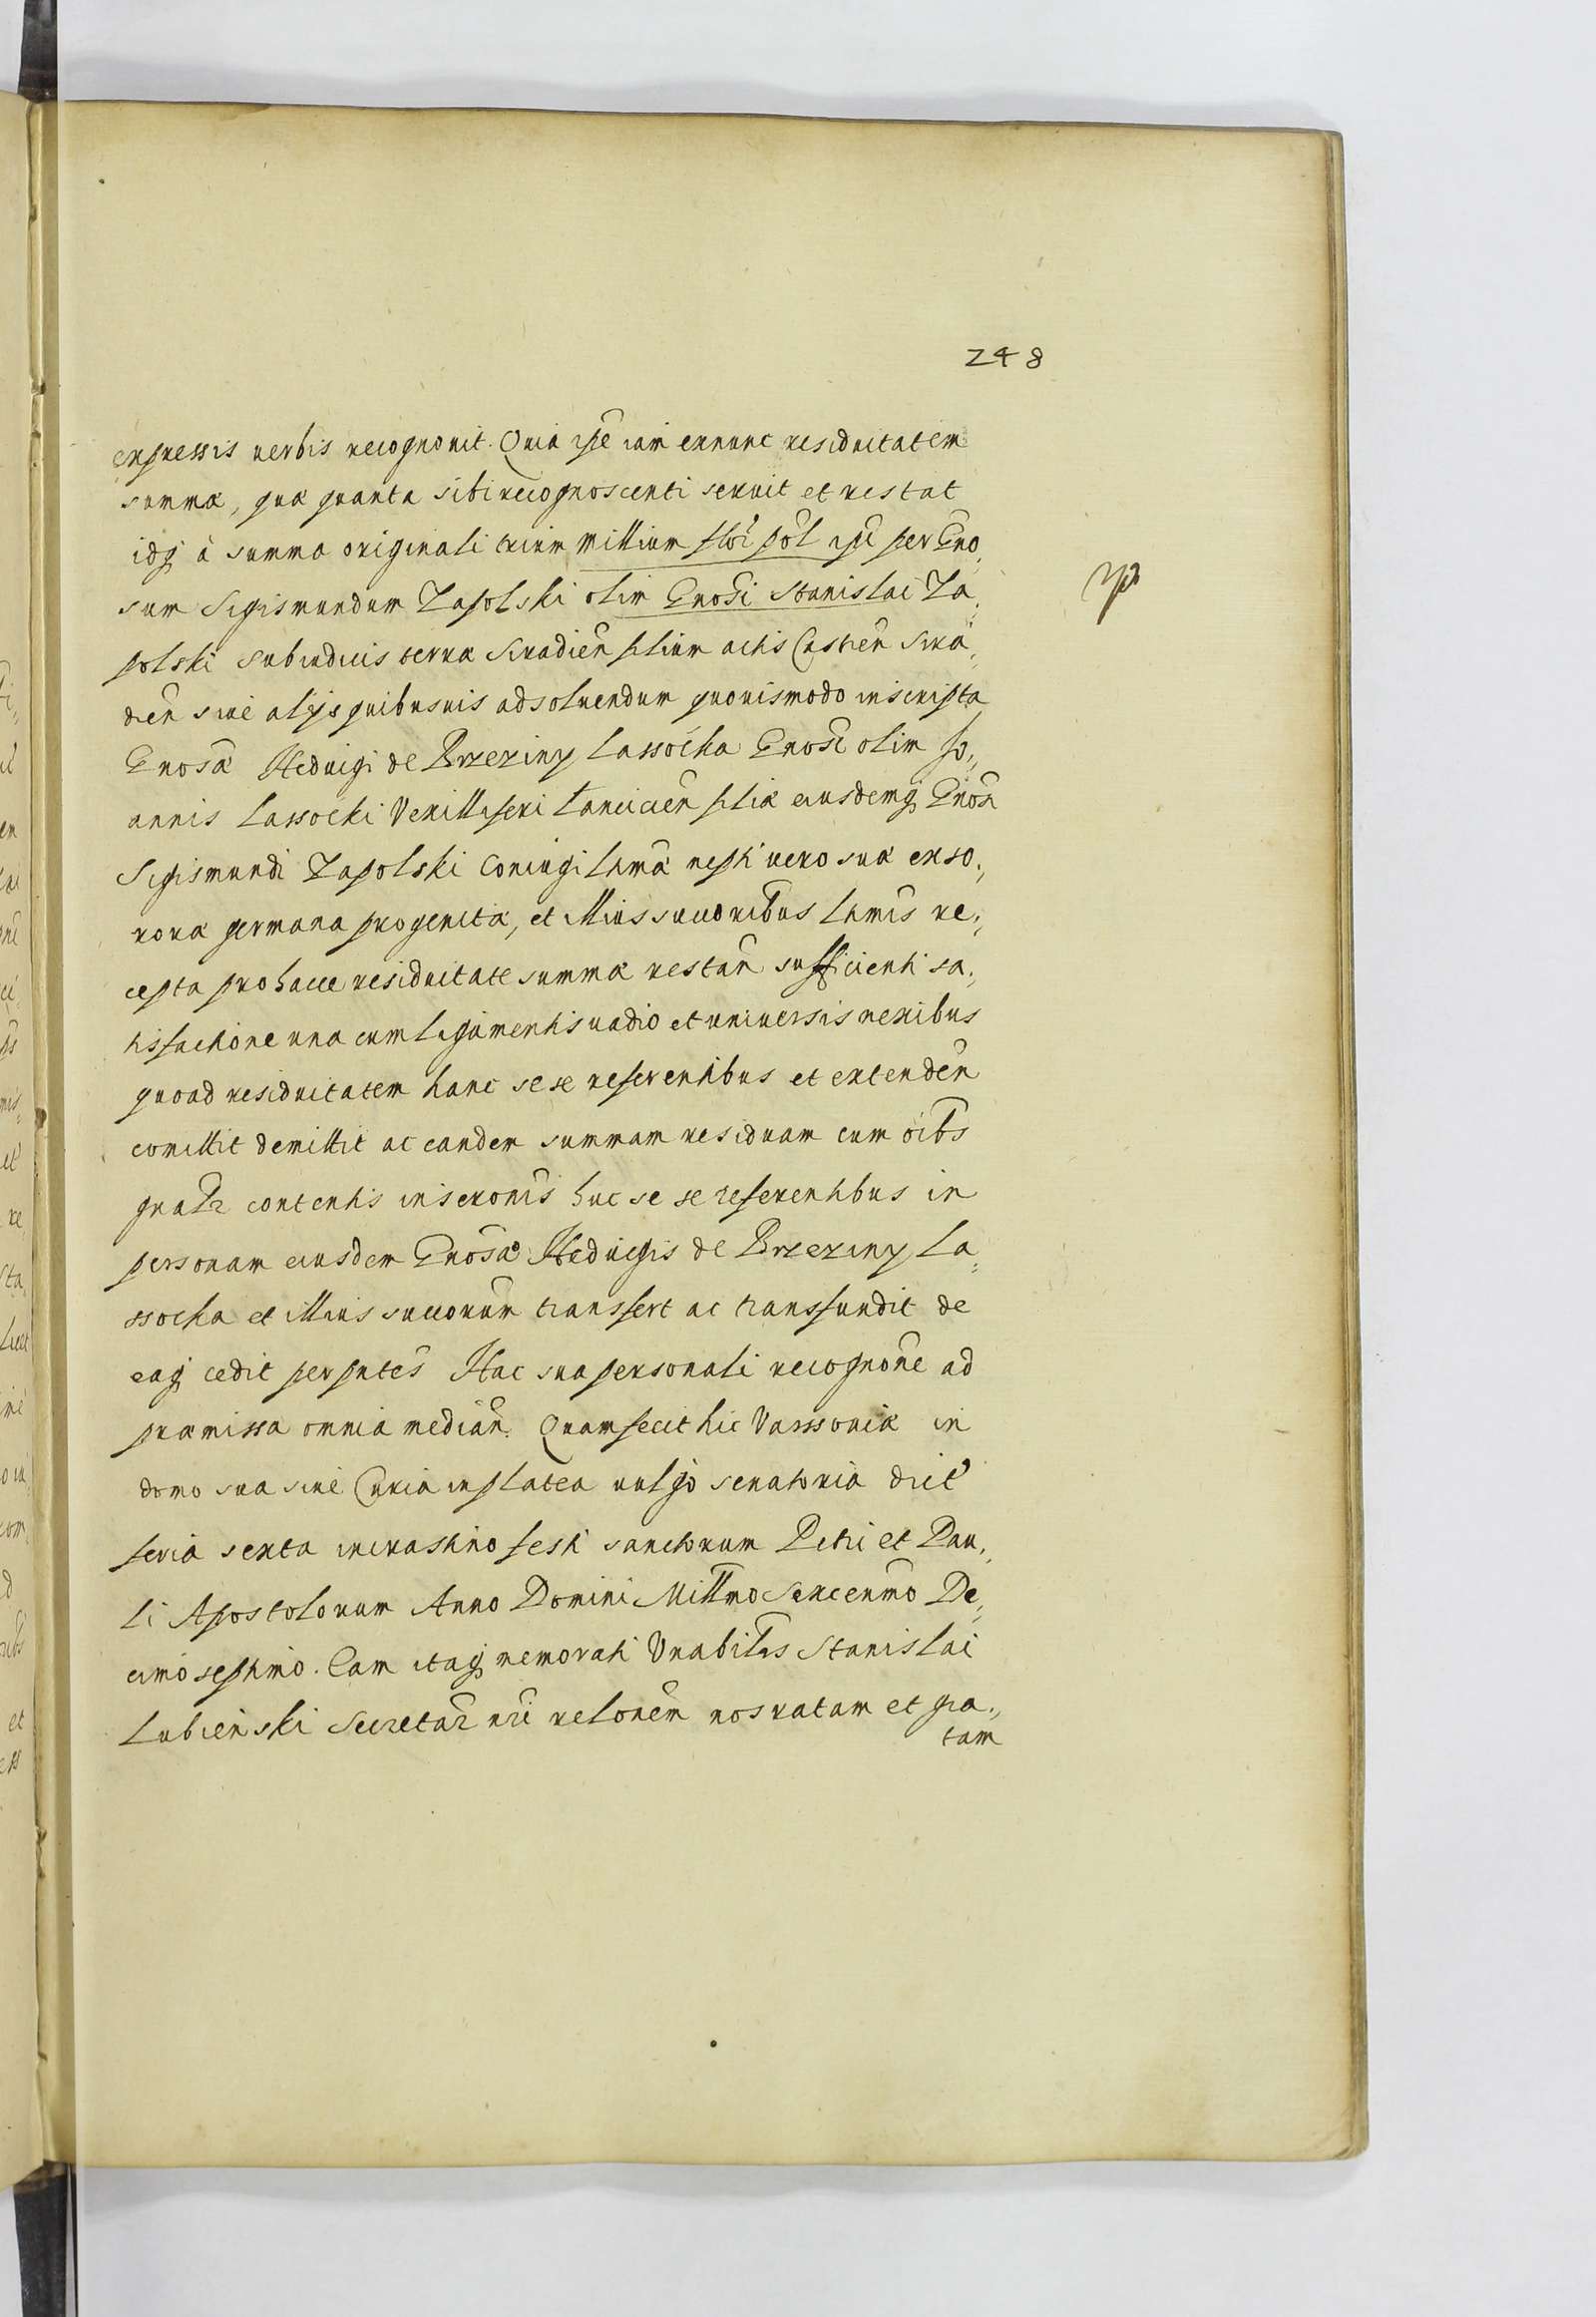 248
expressis verbis recognovit. Quia ipse iam exnunc residuitatem
summæ, quæ quanta sibi recognoscenti servit et restat
idq à summa originali trium millium flor pol ipi per Gno„
sum Sigismundum Zapolski olim Gnosi Stanislai Za„
polski Subiudicis terræ Siradien filium actis Castren Sira„
dien sive alijs quibusvis adsolvendum quovismodo inscripta
Gnosæ Hedvigi de Brzeziny Lassocka Gnosi olim Jo„
annis Lassocki Vexilliferi Lanicien filiæ eiusdemq Gnosi
Sigismundi Zapolski Coniugi lhmæ nepti vero suæ exso„
rora germana progenita, et illius succoribus lhmis re„
cepta pro hacce residuitate summæ restan sufficienti sa„
tisfactione una cum ligamentis vadio et universis nexibus
quoad residuitatem hanc sese referentibus et extenden
comittit demittit ac eandem summam residuam cum oibs
gnalr contentis inscronis huc se se referentibus in
personam eiusdem Gnosæ Hedvigis de Brzeziny La„
ssocka et illius succorum transfert ac transfundit de
eaq cedit per pntes Hac sua personali recognone ad
præmissa omnia median. Quam fecit hic Varssoviæ in
domo sua sive Curia in platea vulgo senatoria dict
feria sexta incrastino festi sanctorum Petri et Pau„
li Apostolorum Anno Domini Millmo Sexcenmo De„
cimo septimo. Eam itaq memorati Vnabilis Stanislai
Lubienski Secretar nri relonem nos ratam et gra„
tam